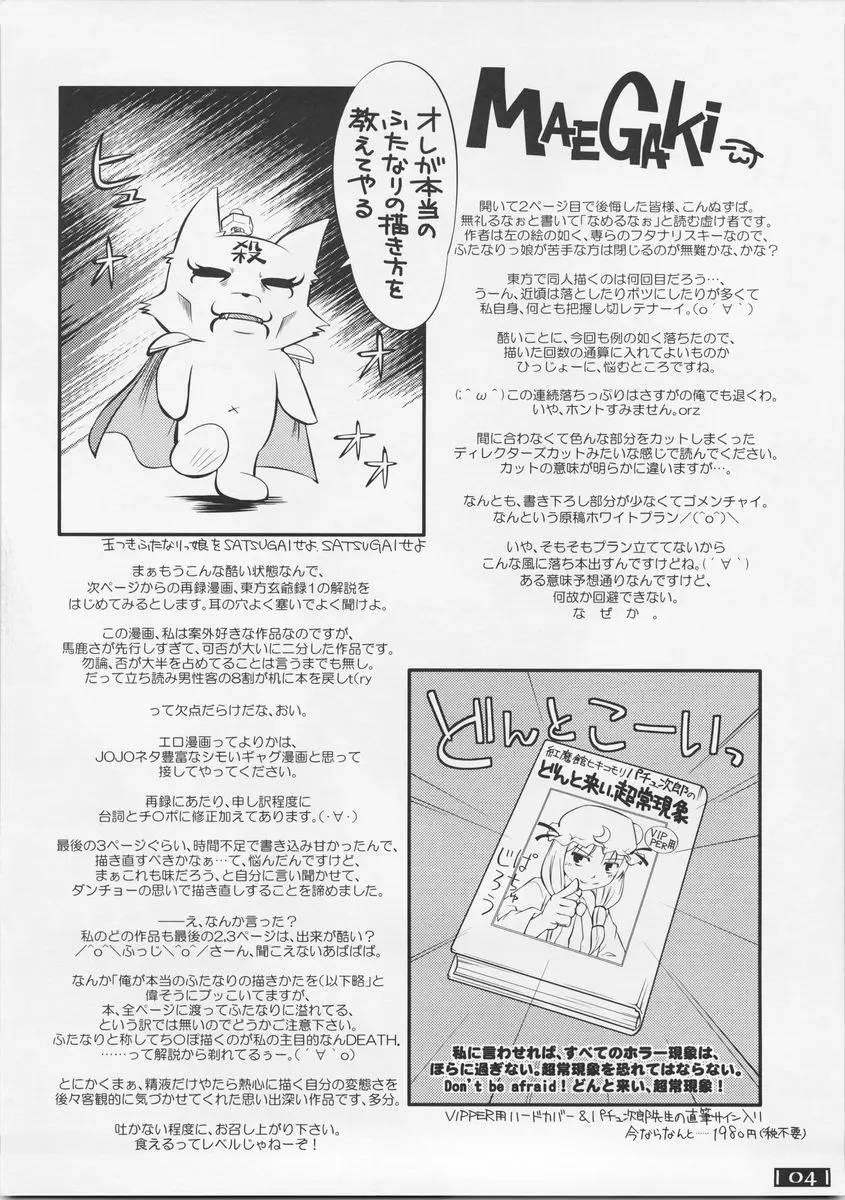 MAEGAKi
開いて2ページ目で後悔した皆様、こんぬずば。
無礼るなぉと書いて「なめるなぉ」と読む虚け者です。
作者は左の絵の如く、専らのフタナリスキーなので、
ふたなりっ娘が苦手な方は閉じるのが無難かな、かな?
東方で同人描くのは何回目だろう…、
うーん、近頃は落としたりボツにしたりが多くて
私自身、何とも把握し切レテナーイ。(o´∀`)
酷いことに、今回も例の如く落ちたので、
描いた回数の通算に入れてよいものか
ひっじょーに、悩むところですね。
(;^ω^)この連続落ちっぷりはさすがの俺でも退くわ。
いや、ホントすみません。orz
間に合わなくて色んな部分をカットしまくった
ディレクターズカットみたいな感じで読んでください。
カットの意味が明らかに違いますが…。
なんとも、書き下ろし部分が少なくてゴメンチャイ。
なんという原稿ホワイトプラン/(^o^)\
いや、そもそもプラン立ててないから
こんな風に落ち本出すんですけどね。(´∀`)
ある意味予想通りなんですけど、
何故か回避できない。
なぜか。
オレが本当の
ふたなりの描き方を
教えてやる
ヒュ
オオオ
殺
玉つきふたなりっ娘をSATSUGAIせよ、SATSUGAIせよ
まぁもうこんな酷い状態なんで、
次ページからの再録漫画、東方玄爺録1の解説を
はじめてみるとします。耳の穴よく塞いでよく聞けよ。
この漫画、私は案外好きな作品なのですが、
馬鹿さが先行しすぎて、可否が大いに二分した作品です。
勿論、否が大半を占めてることは言うまでも無し。
だって立ち読み男性客の8割が机に本を戻しt(ry
って欠点だらけだな、おい。
エロ漫画ってよりかは、
JOJOネタ豊富なシモいギャグ漫画と思って
接してやってください。
再録にあたり、申し訳程度に
台詞とチ○ポに修正加えてあります。(・∀・)
最後の3ページぐらい、時間不足で書き込み甘かったんで、
描き直すべきかなぁ…て、悩んだんですけど、
まぁこれも味だろう、と自分に言い聞かせて、
ダンチョーの思いで描き直しすることを諦めました。
――え、なんか言った?
私のどの作品も最後の2,3ページは、出来が酷い?
/^o^\ふっじ\^o^/さーん、聞こえないあばばば。
なんか「俺が本当のふたなりの描きかたを(以下略」と
偉そうにブッこいてますが、
本、全ページに渡ってふたなりに溢れてる、
という訳では無いのでどうかご注意下さい。
ふたなりと称してち○ぽ描くのが私の主目的なんDEATH.
……って解説から剃れてるぅー。(´∀`o)
とにかくまぁ、精液だけやたら熱心に描く自分の変態さを
後々客観的に気づかせてくれた思い出深い作品です、多分。
吐かない程度に、お召し上がり下さい。
食えるってレベルじゃねーぞ!
どんとこーいっ
紅魔館ヒキコモリパチュ次郎の
どんと来い、超常現象
VIPPER用
ぱちゅ
じろう
私に言わせれば、すべてのホラー現象は、
ほらに過ぎない。超常現象を恐れてはならない。
Don't be afraid! どんと来い、超常現象!
VIPPER用ハードカバー&パチュ次郎先生の直筆サイン入り
今ならなんと……1980円(税不要)
04